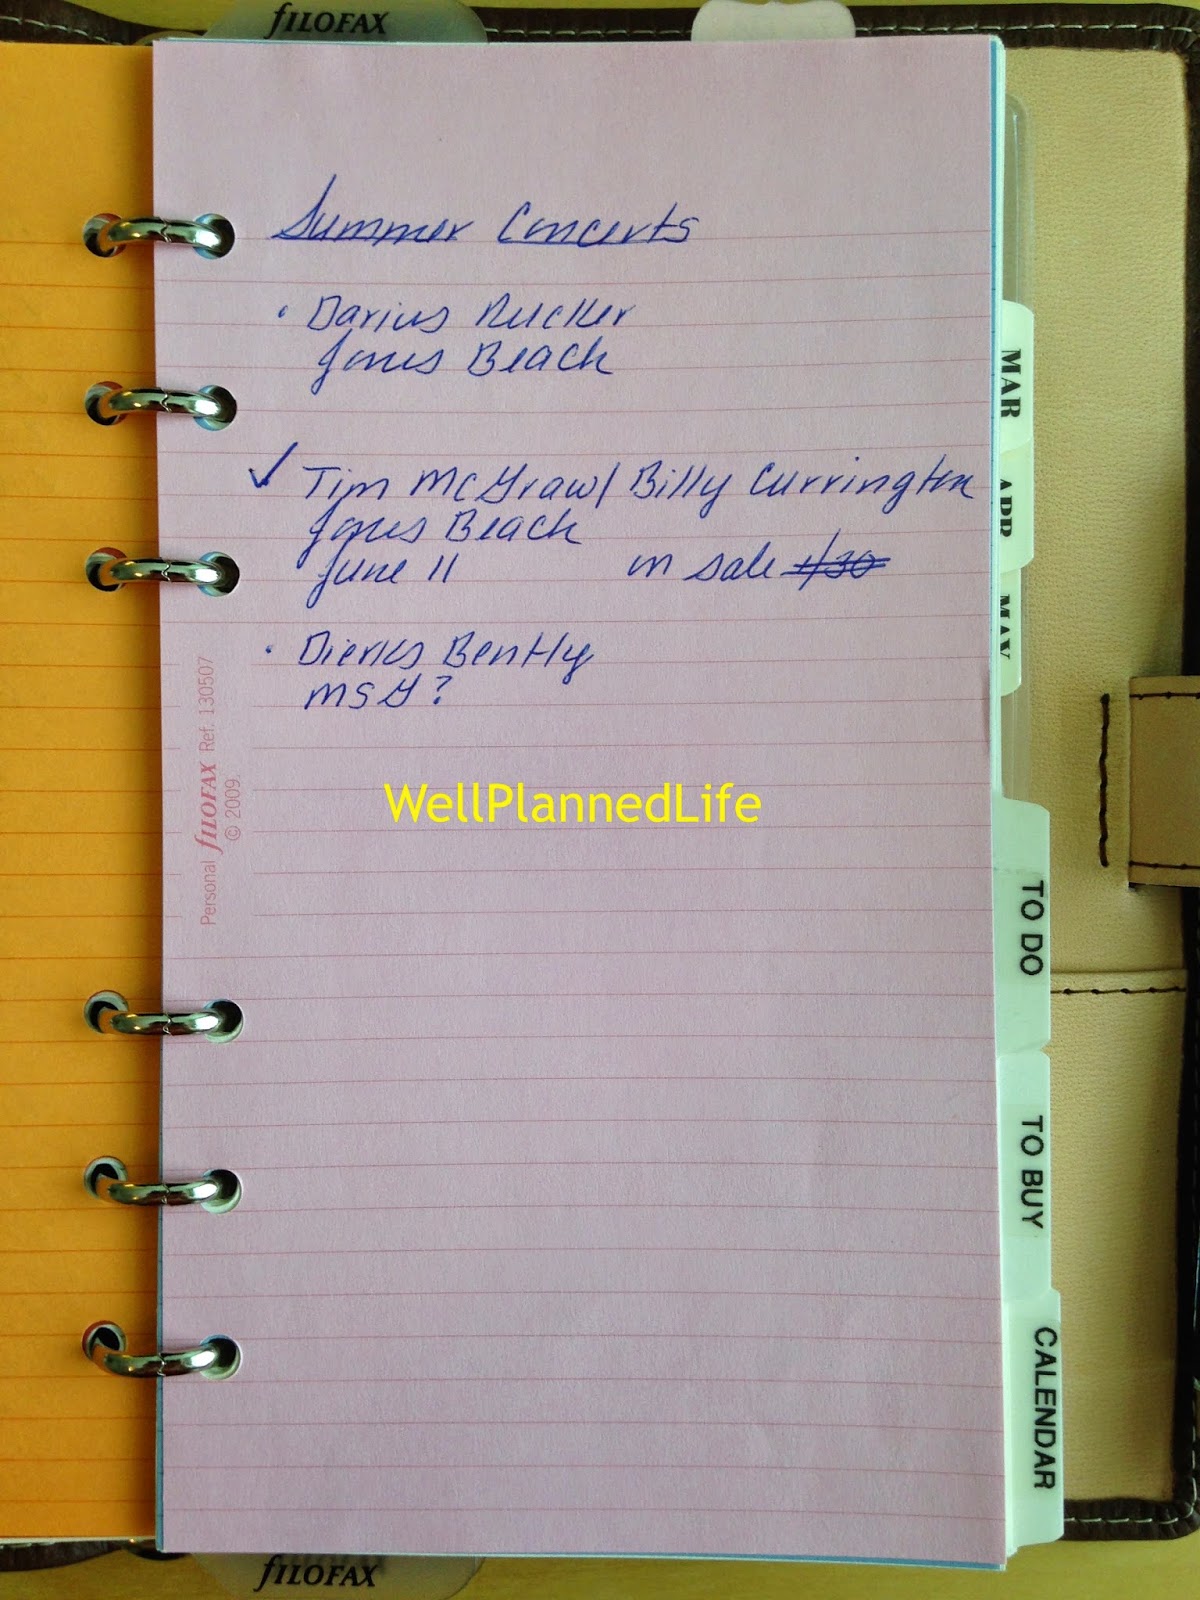 fILOFAX
Summer Concerts
• Darius Rucker
Jones Beach
✓ Tim McGraw/ Billy Currington
Jones Beach
June 11 on sale 1/30
• Dierks Bently
MSG?
WellPlannedLife
Personal fILOFAX Ref. 130507
© 2009.
MAR
APR
MAY
TO DO
TO BUY
CALENDAR
fILOFAX